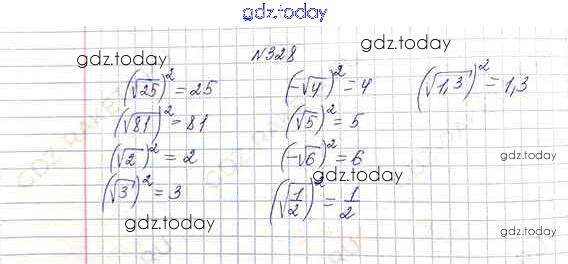 gdz.today
№328
gdz.today
gdz.today
(√25)² = 25
(-√4)² = 4
(√1,3)² = 1,3
(√81)² = 81
(√5)² = 5
(√2)² = 2
(-√6)² = 6
gdz.today
gdz.today
(√3)² = 3
(√1/2)² = 1/2
gdz.today
gdz.today